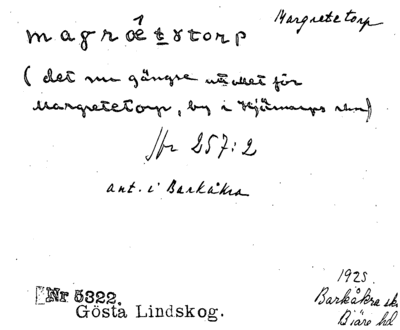 Margretetorp
magrǽtstorp
(det nu gängse uttalet för
Margretetorp, by i Hjärnarps skn)
Jfr 257:2
ant. i Barkåkra
1925.
Barkåkra sk.
Bjäre hd
Nr 5322.
Gösta Lindskog.